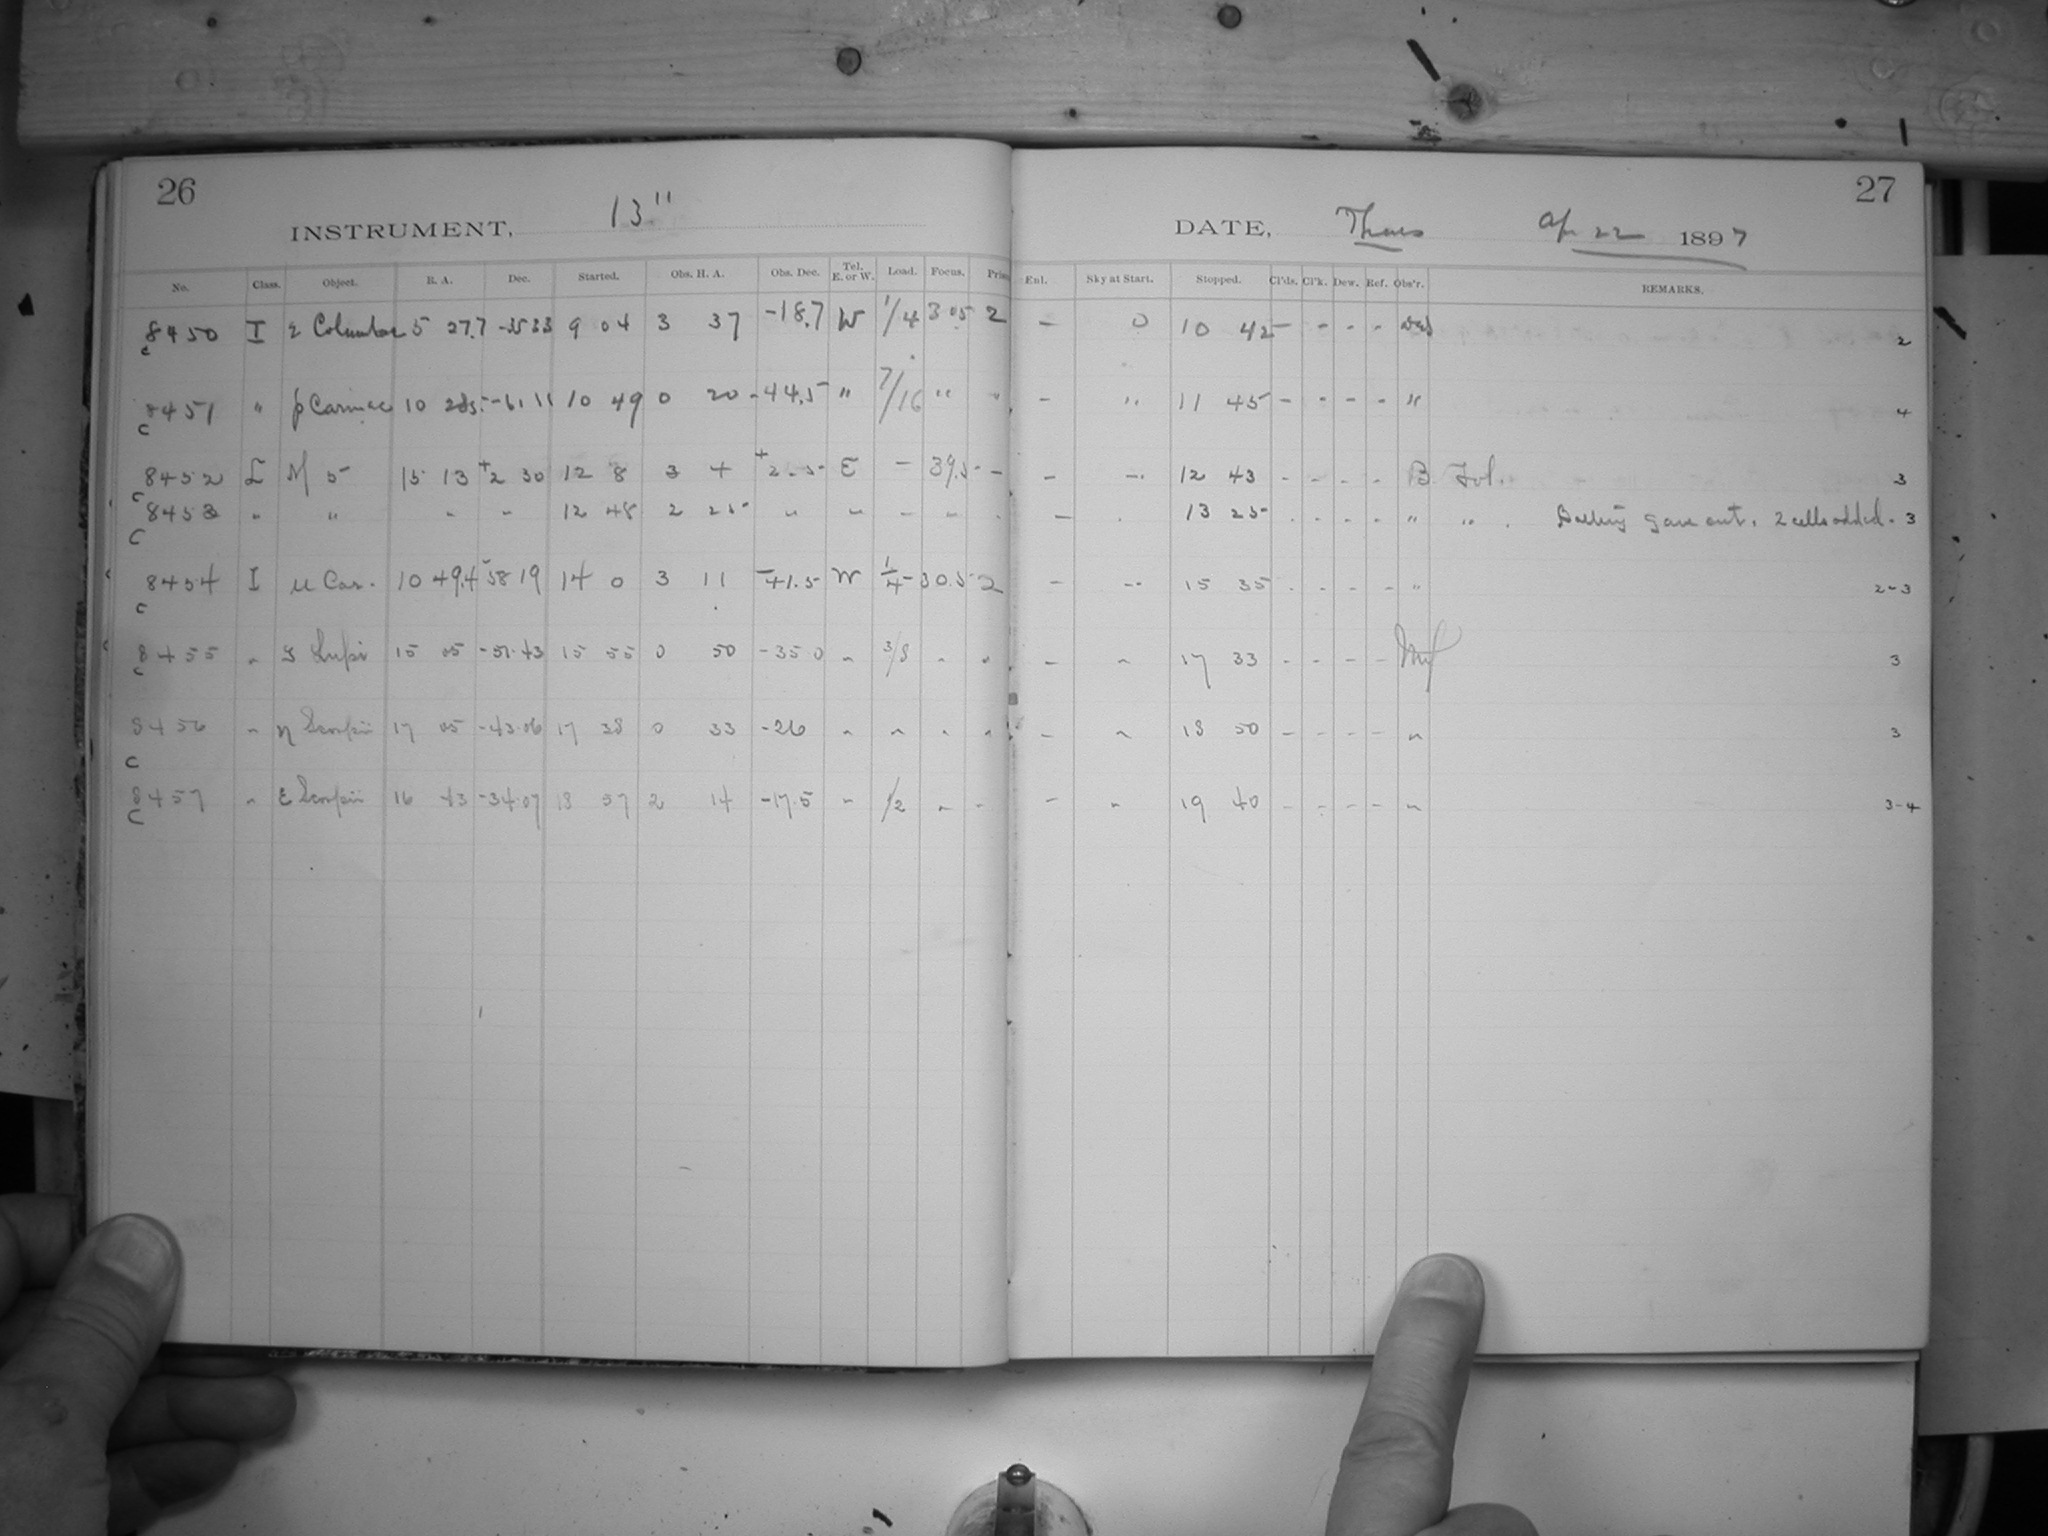 26
INSTRUMENT, 13"
No. Class. Object. R. A. Dec. Started. Obs. H. A. Obs. Dec. Tel. E. or W. Load. Focus. Prism
8450 I Columbae 5 27.7 -35 33 9 04 3 37 -18.7 W 1/4 30.5 2
c
8451 " p Carinae 10 28.5 -61 11 10 49 0 20 -44.5 " 7/16 " "
c
8452 L M 5 15 13 +2 30 12 8 3 4 +2.5 E - 39.5 -
c
8453 " " " " 12 48 2 25 " " - " -
c
8454 I u Car. 10 49.4 -58 19 14 0 3 11 -41.5 W 1/4 30.5 2
c
8455 " Lupi 15 05 -51.43 15 55 0 50 -35 0 " 3/8 " "
c
8456 " η Scorpii 17 05 -43.06 17 38 0 33 -26 " " " "
c
8457 " ε Scorpii 16 43 -34.07 18 57 2 14 -17.5 " 1/2 " "
c
27
DATE, Thurs Apr 22 1897
Enl. Sky at Start. Stopped. Cl'ds. Cl'k. Dew. Ref. Obs'r. REMARKS.
- 0 10 42 - - - - 2
- " 11 45 - - - - " 4
- - 12 43 - - - - B Fol. 3
- 13 25 - - - - " " Battery gave out. 2 cells added. 3
- - 15 35 - - - - " 2-3
- " 17 33 - - - - 3
- " 18 50 - - - - " 3
- " 19 40 - - - - " 3-4